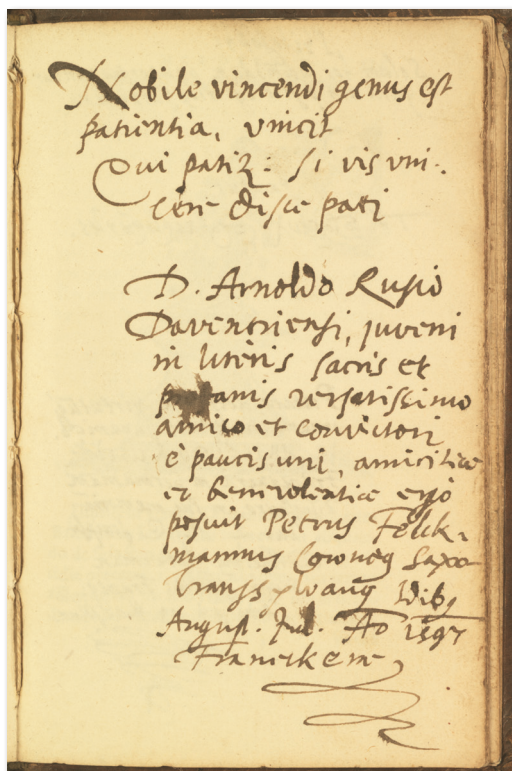 Nobile vincendi genus est
patientia, vincit
Qui patitꝛ: si vis vin:
cere disce pati
D. Arnoldo Rusio
Daventriensi, juveni
in literis sacris et
profanis versatissimo
amico et convictori
è paucis uni, amicitiae
et benevolentiae ergô
posuit Petrus Felck-
mannus Saxo
Transsylvanꝰ Idibꝫ
August. Jul. Aº 1597
Franekerae